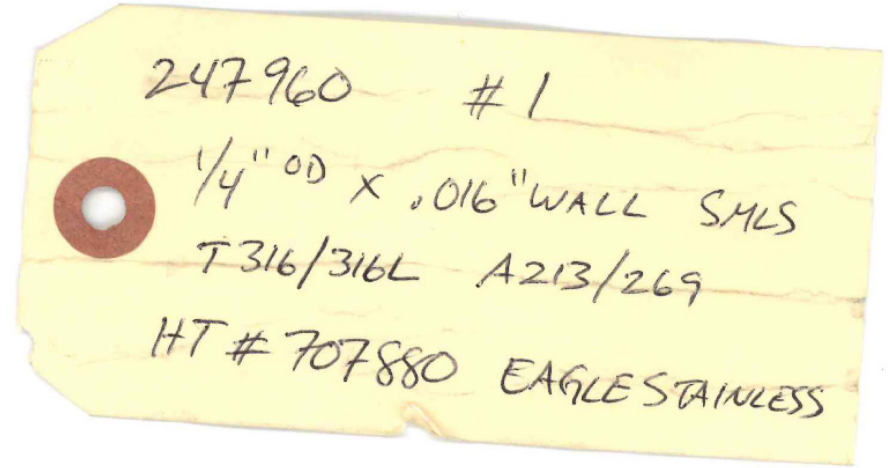 247960 #1
1/4" OD X .016" WALL SMLS
T316/316L A213/269
HT # 707880 EAGLE STAINLESS